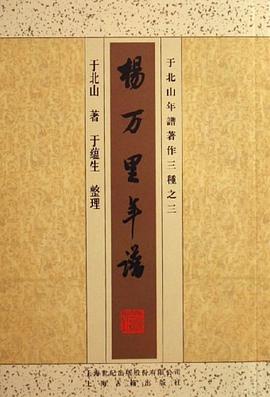 于北山年譜著作三種之三
楊万里年譜
于北山 著 于蕴生 整理
上海世紀出版股份有限公司
上海古籍出版社